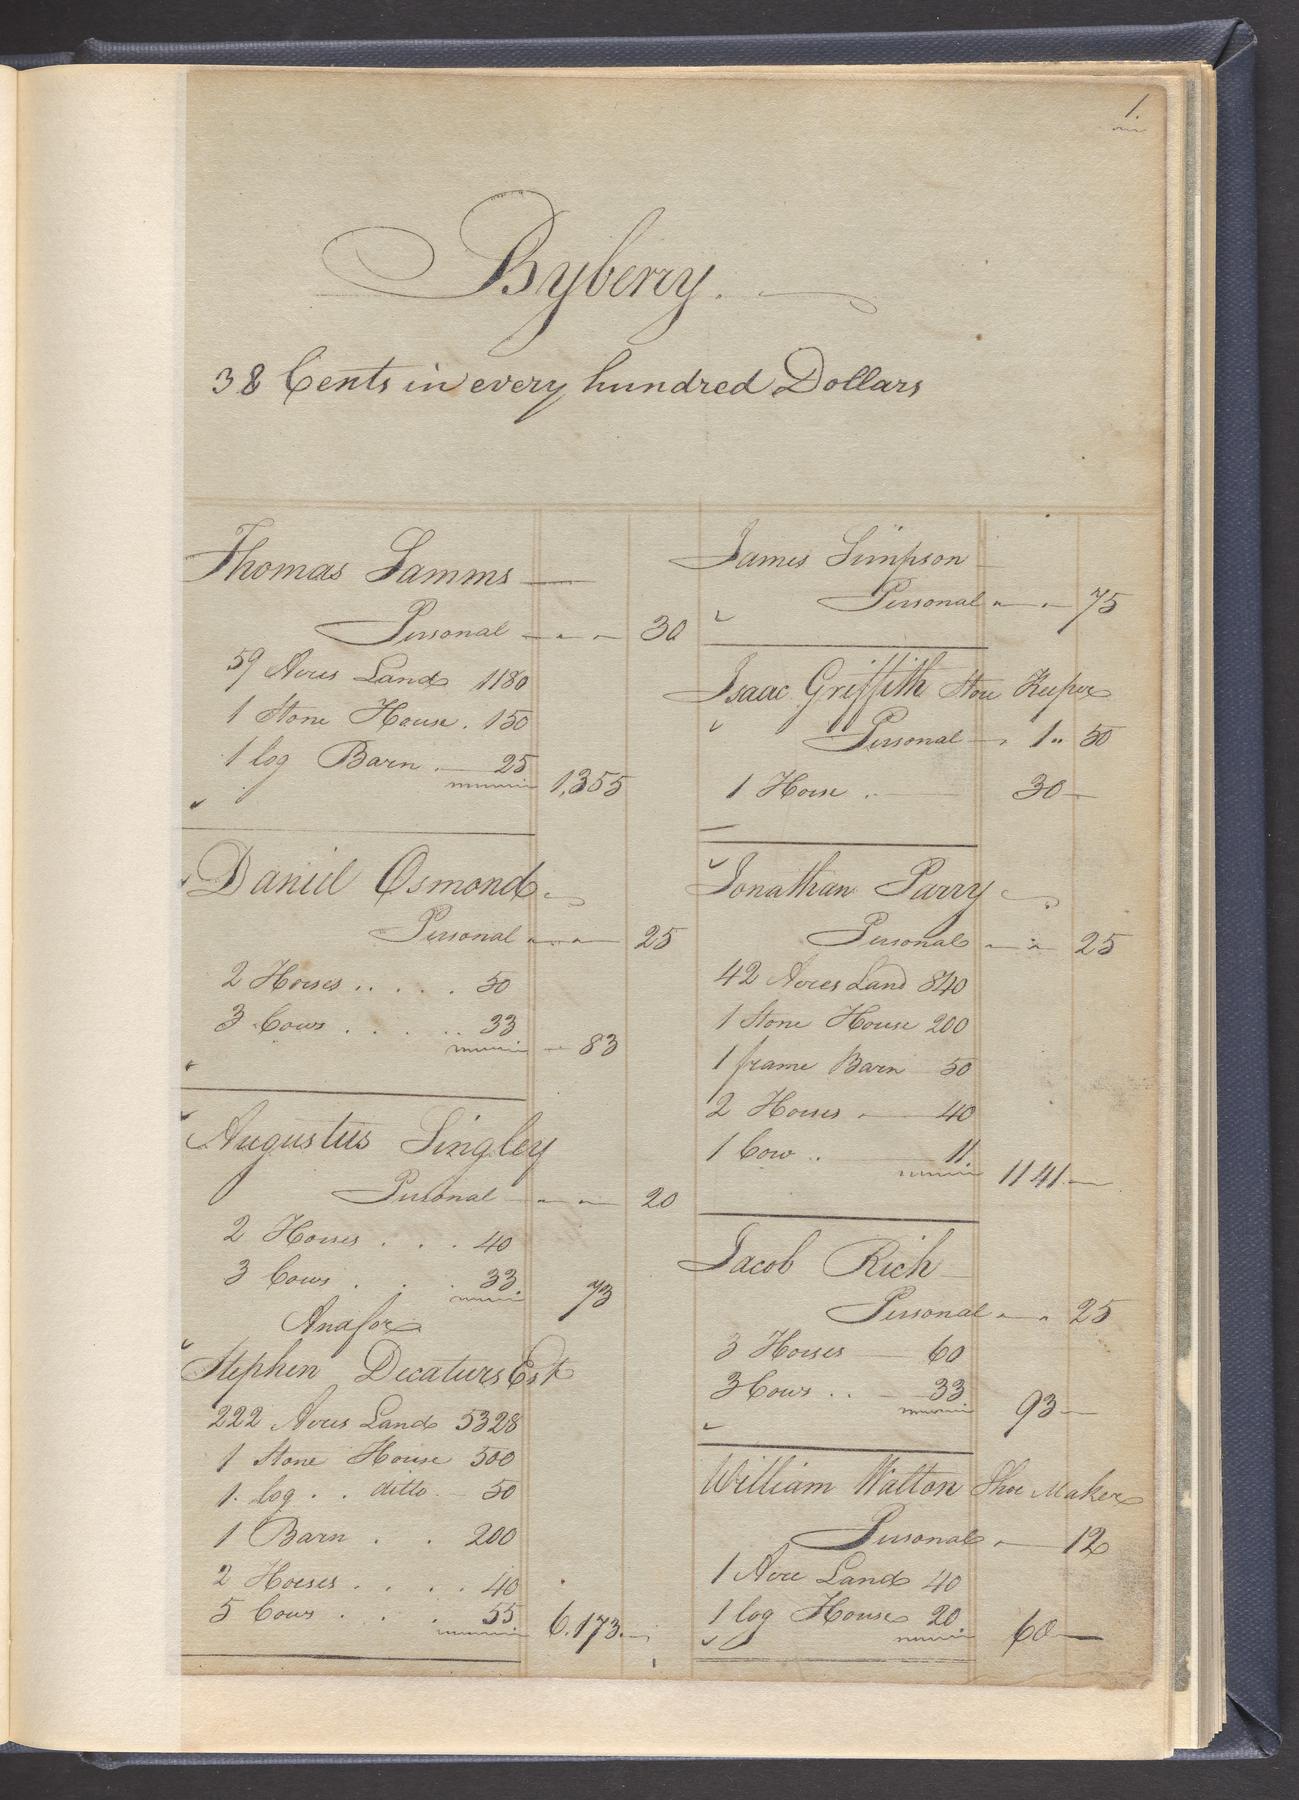 1.
Byberry.
38 Cents in every hundred Dollars
Thomas Samms
Personal 30
59 Acres Land 1180
1 Stone House . 150
1 log Barn . 25 1,355
Daniel Osmond
Personal 25
2 Horses . . . . . 50
3 Cows . . . . . 33 83
Augustus Singley
Personal 20
2 Horses . . . 40
3 Cows . . . 33 73
And for
Stephen Decaturs Est
222 Acres Land 5328
1 Stone House 500
1. log . . ditto 50
1 Barn . . 200
2 Horses . . . . 40
5 Cows . . . 55 6.173.
James Simpson
Personal 75
Isaac Griffith Store Keeper
Personal 1 " 50
1 Horse . 30
Jonathan Parry
Personal 25
42 Acres Land 840
1 Stone House 200
1 frame Barn 50
2 Horses 40
1 Cow . 11. 1141
Jacob Rich
Personal 25
3 Horses 60
3 Cows . . 33 93
William Walton Shoe Maker
Personal 12
1 Acre Land 40
1 log House 20 60